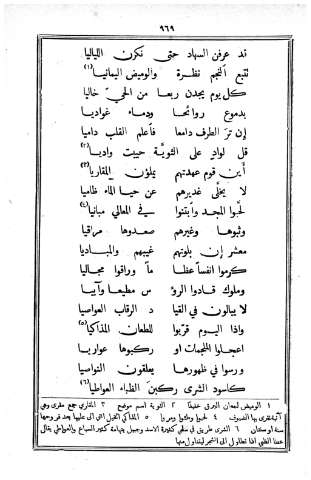 ٩٦٩
قد عرفن السهاد حتى نكرن اللياليا
تتبع النجم نظرة والوميض اليمانيا (١)
كل يوم يجدن ربعا من الحيّ خاليا
بدموع روائحا ودماء غواديا
إن ترَ الطرف دامعا فاعلم القلب داميا
قل لوادٍ على الثويَّة حييت واديا (٢)
أين قوم عهدتهم يملؤن المقاريا (٣)
لا يخلَّى غديرهم عن حيا الماء ظاميا
لحُبوا المجد وابتنوا في المعالي مبانيا (٤)
وثبوها وغيرهم صعدوها مراقيا
معشر إن بلوتهم غيبهم والمباديا
كرموا انفساً عظا ماً وراقوا مجاليا
وملوك قادوا الرؤ س مطيعا وآبيا
لا يبالون في القيا د الرقاب العواصيا
واذا اليوم قرّبوا للطعان المذاكيا (٥)
اعجلوا الملجمات او ركبوها عواريا
ورسوا في ظهورها يعلقون النواصيا
كاسود الشرى ركبنَ الظباء العواطيا (٦)
١ الوميض لمعان البرق خفيفًا ٢ الثوية اسم موضع ٣ المقاري جمع مقرى وهي
آنية يقرى بها الضيوف ٤ لحبوا وطئوا ومروا ٥ المذاكي الخيل التي اتى عليها بعد قروحها
سنة او سنتان ٦ الشرى طريق في سلمى كثيرة الاسد وجبل بتهامة كثير السباع والعواطي يقال
عطا الظبي اذا تطاول الى الشجر ليتناول منها